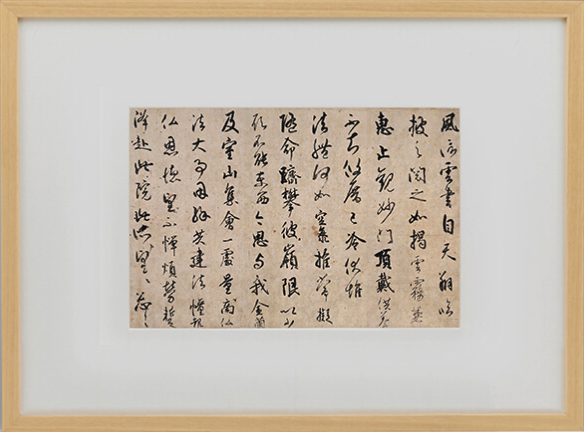 風信雲書自天翔臨
披之閲之如揭雲霧兼
惠止觀妙門頂戴供養
不知攸厝已冷伏惟
法體何如空海推常擬
隨命躋攀彼嶺限以少
願不能東西今思与我金蘭
及室山集會一處量商仏
法大事因緣共建法幢報
仏恩德望不憚煩勞蹔
降赴此院此所望〻忩〻